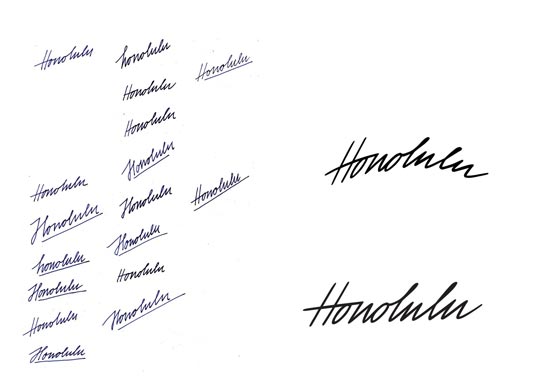 Honolulu
Honolulu
Honolulu
honolulu
Honolulu
Honolulu
Honolulu
honolulu
Honolulu
Honolulu
Honolulu
Honolulu
Honolulu
Honolulu
Honolulu
Honolulu
Honolulu
Honolulu
Honolulu